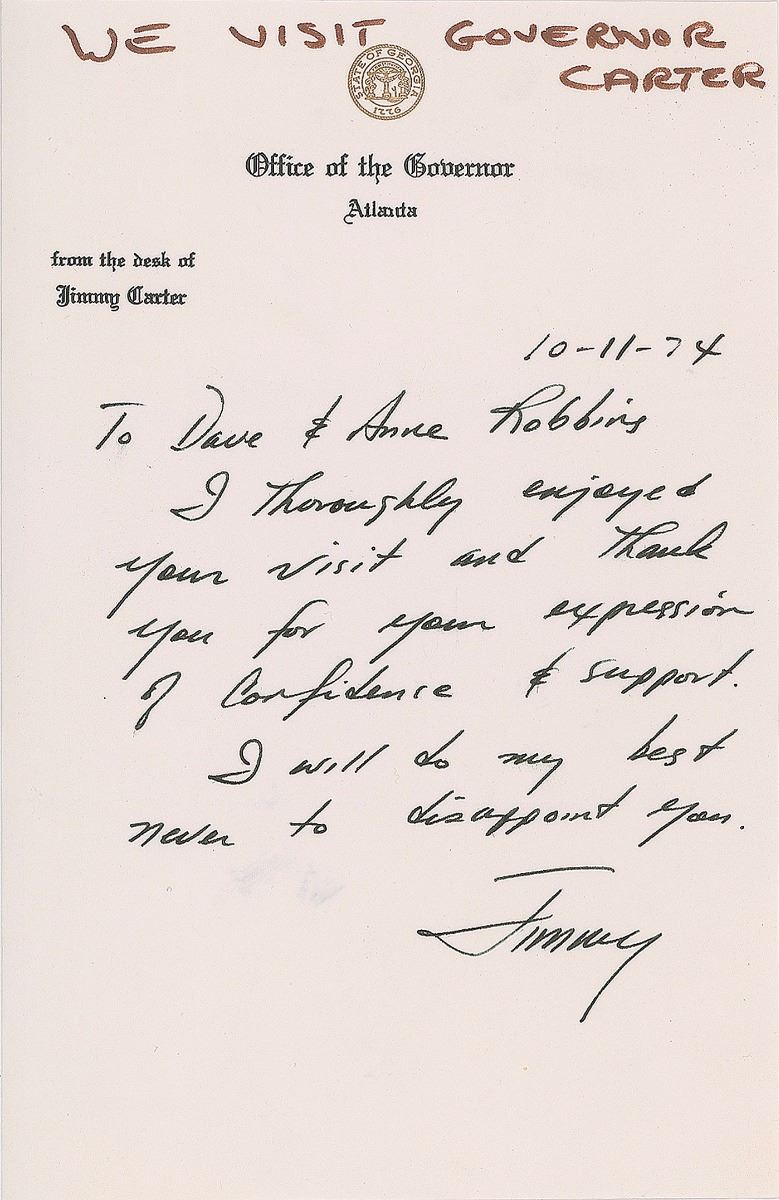 WE VISIT GOVERNOR
CARTER
STATE OF GEORGIA
1776
Office of the Governor
Atlanta
from the desk of
Jimmy Carter
10-11-74
To Dave & Anne Robbins
I thoroughly enjoyed
your visit and thank
you for your expression
of confidence & support.
I will do my best
never to disappoint you.
Jimmy